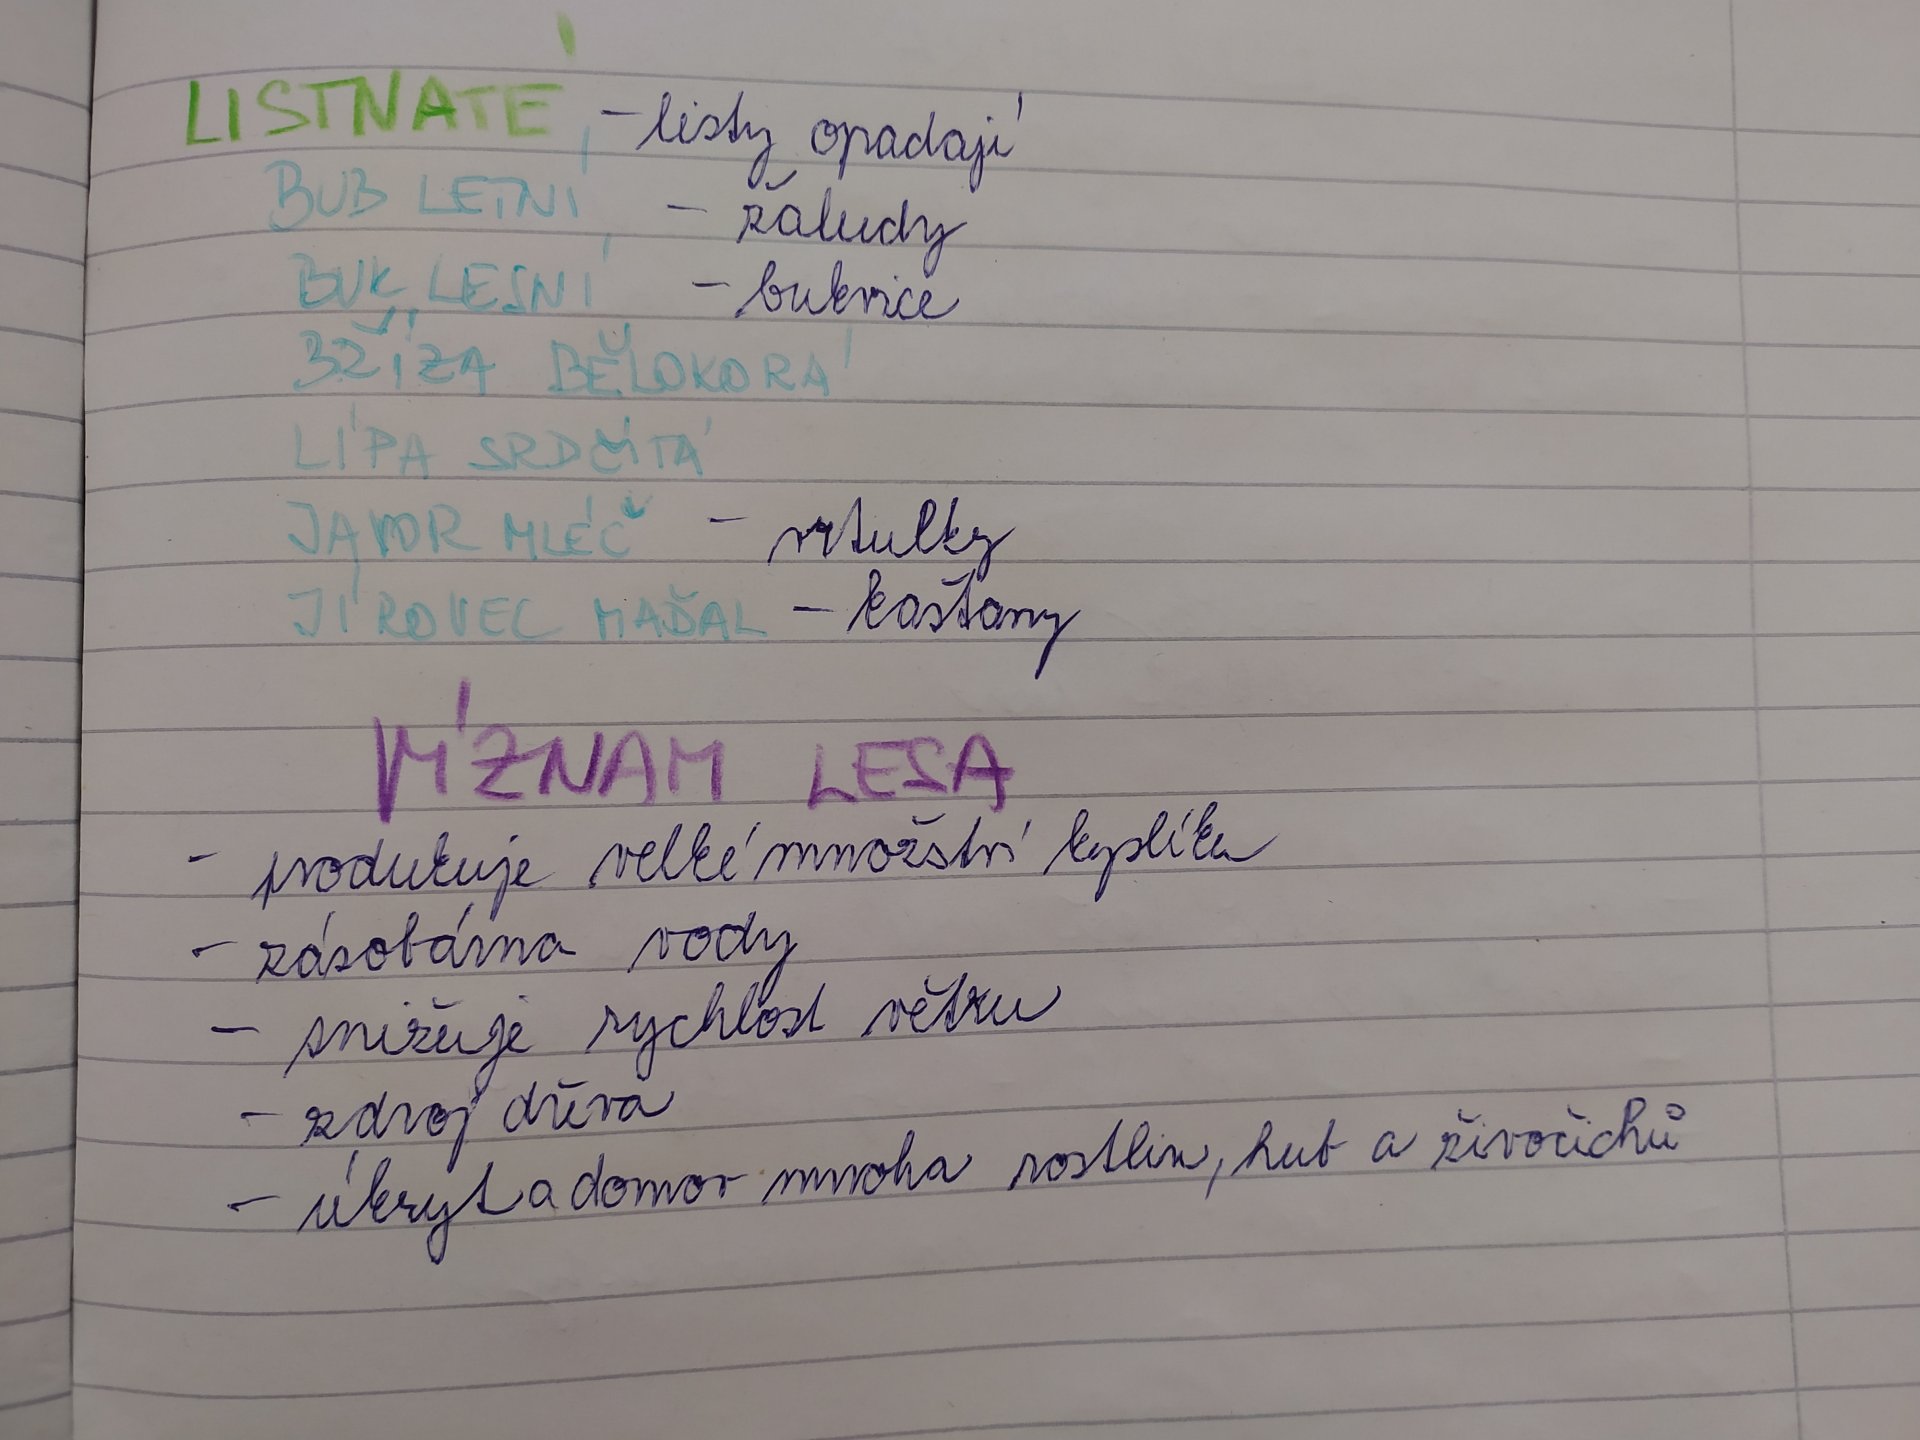 LISTNATÉ - listy opadají
BUB LETNÍ - žaludy
BUK LESNÍ - bukvice
BŽÍZA BĚLOKORÁ
LÍPA SRDČITÁ
JAVOR MLÉČ - vrtulky
JÍROVEC MAĎAL - kaštany
VÍZNAM LESA
- produkuje velké množství kyslíku
- zásobárna vody
- snižuje rychlost větru
- zdroj dřeva
- úkryt a domov mnoha rostlin, hub a živočichů